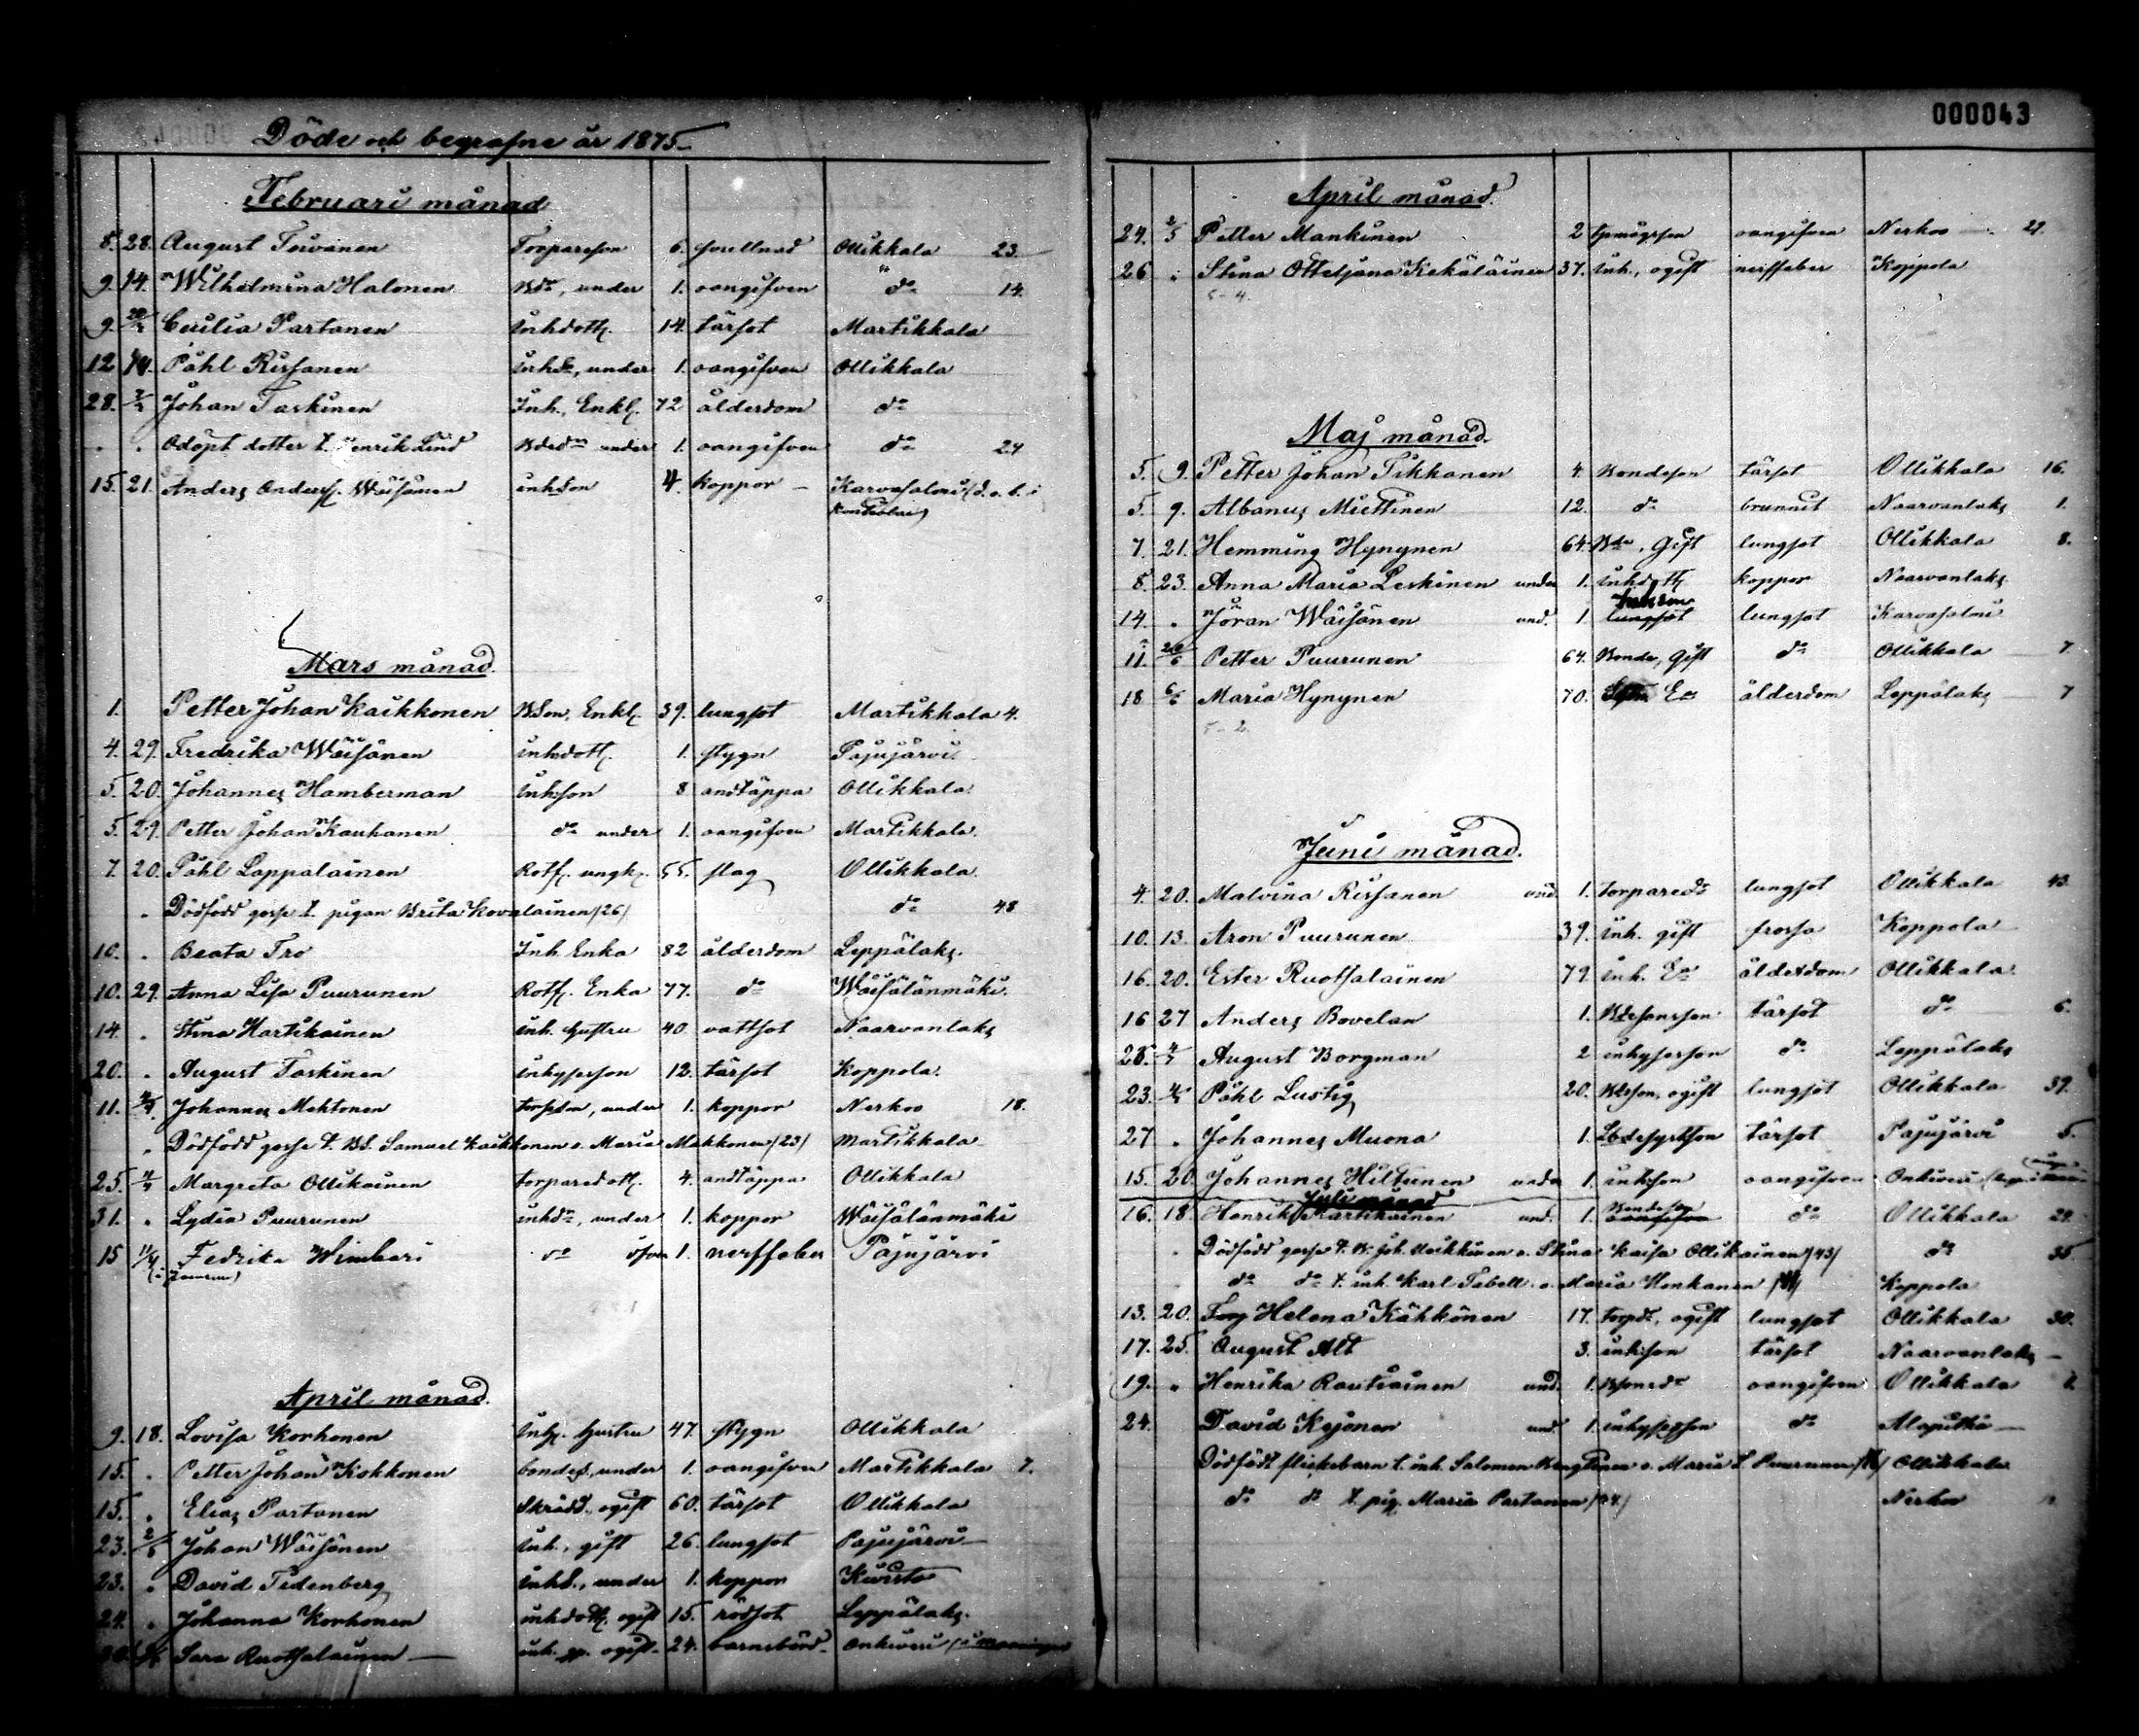 Döde och begrafne år 1875
Februari månad
8. 28. August Toivanen Torpareson 6. Ollikkala 23.
9. 14. Wilhelmina Halonen Bdr, under 1. oangifven do 14.
9. Cecilia Partanen inhdott. 14. tärsot Martikkala
12 14. Påhl Rissanen inhdr, under 1. oangifven Ollikkala
28. 7/3 Johan Taskinen Inh., Enkl. 72 ålderdom do
Odöpt dotter t. Henrik Lind under 1. oangifven do 24
15. 21. Anders Anderss. Wäisänen inhson 4. koppor – Karvasalmi (d. o. b. i
Kontiolax)
Mars månad.
1. Petter Johan Kaikkonen BSon, Enkl. 39. lungsot Martikkala 4.
4. 29. Fredrika Wäisänen inhdott. 1. stygn Pajujärvi.
5. 20. Johannes Hamberman inhson 8 andtäppa Ollikkala.
5. 29. Petter Johan Kauhanen do under 1. oangifven Martikkala.
7. 20. Påhl Lappalainen Rotf. ungk. 55. slag Ollikkala.
" Dödfödd gosse t. pigan Brita Kovalainen /26/ do 48
10. " Beata Tro Inh. Enka 82 ålderdom Leppälaks.
10. 29. Anna Lisa Puurunen Rotf. Enka 77. do Wäisälänmäki.
14. " Stina Hartikainen inh. hustru 40 vattsot Naarvanlaks
20. " August Taskinen inhysesson 12. tärsot Koppola.
11. 4/4. Johannes Mehtonen torpson, under 1. koppor Nerkoo 18.
" Dödfödd gosse t. BS. Samuel Kaikkonen o. Maria Makkonen /23/ Martikkala
25. 4/4 Margreta Ollikainen torparedott. 4. andtäppa Ollikkala
31. " Lydia Puurunen inhdr, under 1. koppor Wäisälänmäki
15 11/4 Fedrika Wimbari do öfver 1. nerffeber Pajujärvi
April månad.
9. 18. Lovisa Korhonen Inh. hustru 47. stygn Ollikkala
15. " Petter Johan Kokkonen bondes., under 1. oangifven Martikkala 7.
15. " Elias Partanen Skrädd. ogift 60. tärsot Ollikkala
23. 2/5 Johan Wäisänen inh., gift 26. lungsot Pajujärvi –
23. " David Tidenberg inhS., under 1. koppor Kivisto
24. " Johanna Korhonen inhdott. ogift 15. rödsot Leppälaks.
Sara Ruotsalainen — inh. ogift. 24. barnsbörd. Onkivesi
000043
April månad.
24. 2/5 Petter Mankinen 2 oangifven Nerkoo – 22.
26 " Stina Ottiljana Kekäläinen 37. inh., ogift nerffeber Koppola
5-4.
Maj månad.
5. 9. Petter Johan Tikkanen 4. Bondeson tärsot Ollikkala 16.
5. 9. Albanus Miettinen 12. do brunnit Naarvanlaks 1.
7. 21. Hemming Hynynen 64. Bde, Gift lungsot Ollikkala 8.
8. 23. Anna Maria Leskinen under 1. inhdott koppor Naarvanlaks
14. " Jöran Wäisänen und. 1 lungsot inhson lungsot Karvasalmi
11. 20/6 Petter Puurunen 64. Bonde, Gift do Ollikkala 7.
18 6/6 Maria Hynynen 70. Ea ålderdom Leppälaks 7
5-2.
Juni månad.
4. 20. Malvina Rissanen und. 1. torparedr lungsot Ollikkala 43.
10. 13. Aron Puurunen 39. inh. gift frossa Koppola
16. 20. Ester Ruotsalainen 79 inh. Ea ålderdom Ollikkala.
16 27 Anders Bovelan 1. Bdesonsson tärsot do 6.
28. 4/7 August Borgman 2 inhysesson do Leppälaks
23. 4/7 Påhl Lustig 20. Bdeson, ogift lungsot Ollikkala 39.
27 " Johannes Muona 1. tärsot Pajujärvi 5.
15. 20. Johannes Hiltunen under 1. inhson oangifven Onkivesi
Juli månad
16. 18. Henrik Hartikainen und. 1. Bondeson do Ollikkala 24.
" Dödfödd gosse t. B. Joh. Heikkinen o. Stina Kaisa Ollikainen /43/ do 35.
do do t. inh. Karl Tabell o. Maria Honkanen Koppola
13. 20. Helena Kähkönen 17. torpdr, ogift lungsot Ollikkala 30.
17. 25. August Alt 3. inhson tärsot Naarvanlaks –
19. " Henrika Rautiainen und. 1. Bsonsdr oangifven Ollikkala
24. David Kejonen und. 1. inhysesson do Alapitkä –
Dödfödt flickebarn t. inh. Salomon o. Maria L. Puurunen Ollikkala
do do t. pig. Maria Partanen /24./ Nerkoo